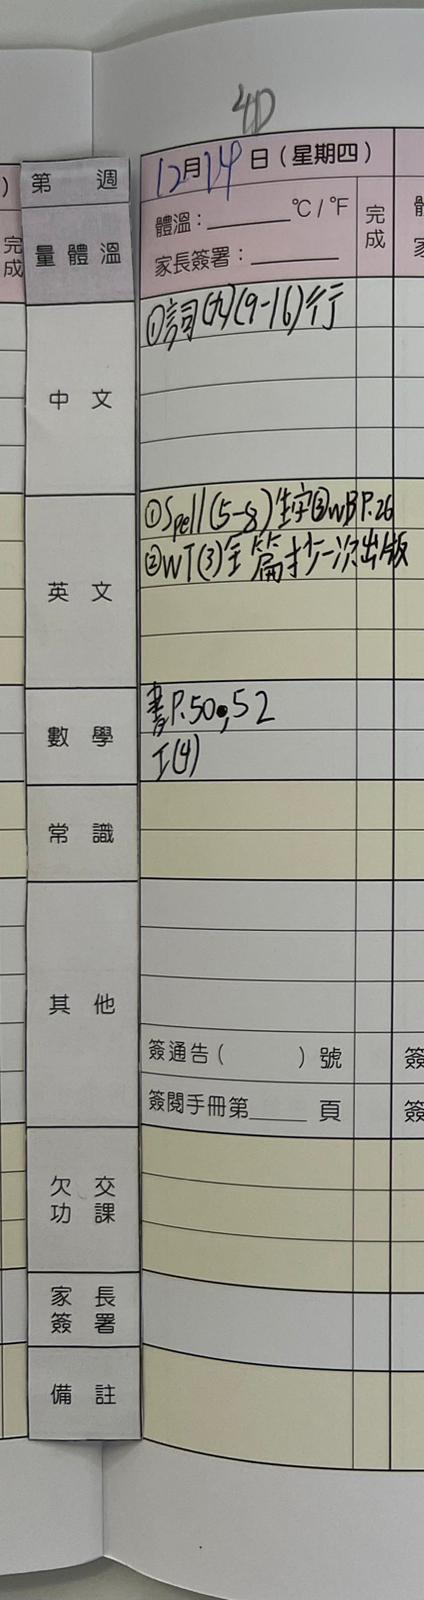 4D
第 週
12月14日(星期四)
量體溫
體溫：______°C/°F
完成
家長簽署：______
完成
中文
①詞(九)(9-16)行
英文
①Spell(5-8)生字③WB P.26
②WT(3)全篇抄一次出版
數學
書P.50,52
工(4)
常識
其他
簽通告( )號
簽
簽閱手冊第____頁
簽
欠交功課
家長簽署
備註